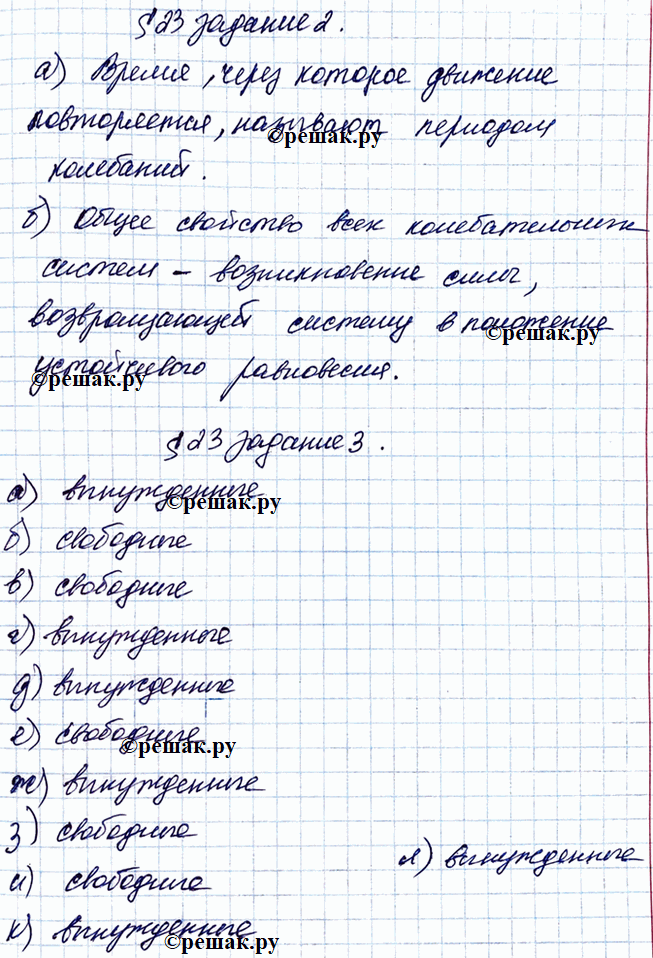 §23 задание 2.
а) Время, через которое движение
повторяется, называют периодом
©решак.ру
колебаний.
б) Общее свойство всех колебательных
систем – возникновение силы,
возвращающей систему в положение
©решак.ру
устойчивого равновесия.
©решак.ру
§23 задание 3.
а) вынужденные
©решак.ру
б) свободные
в) свободные
г) вынужденные
д) вынужденные
е) свободные
©решак.ру
ж) вынужденные
з) свободные
л) вынужденные
и) свободные
к) вынужденные
©решак.ру